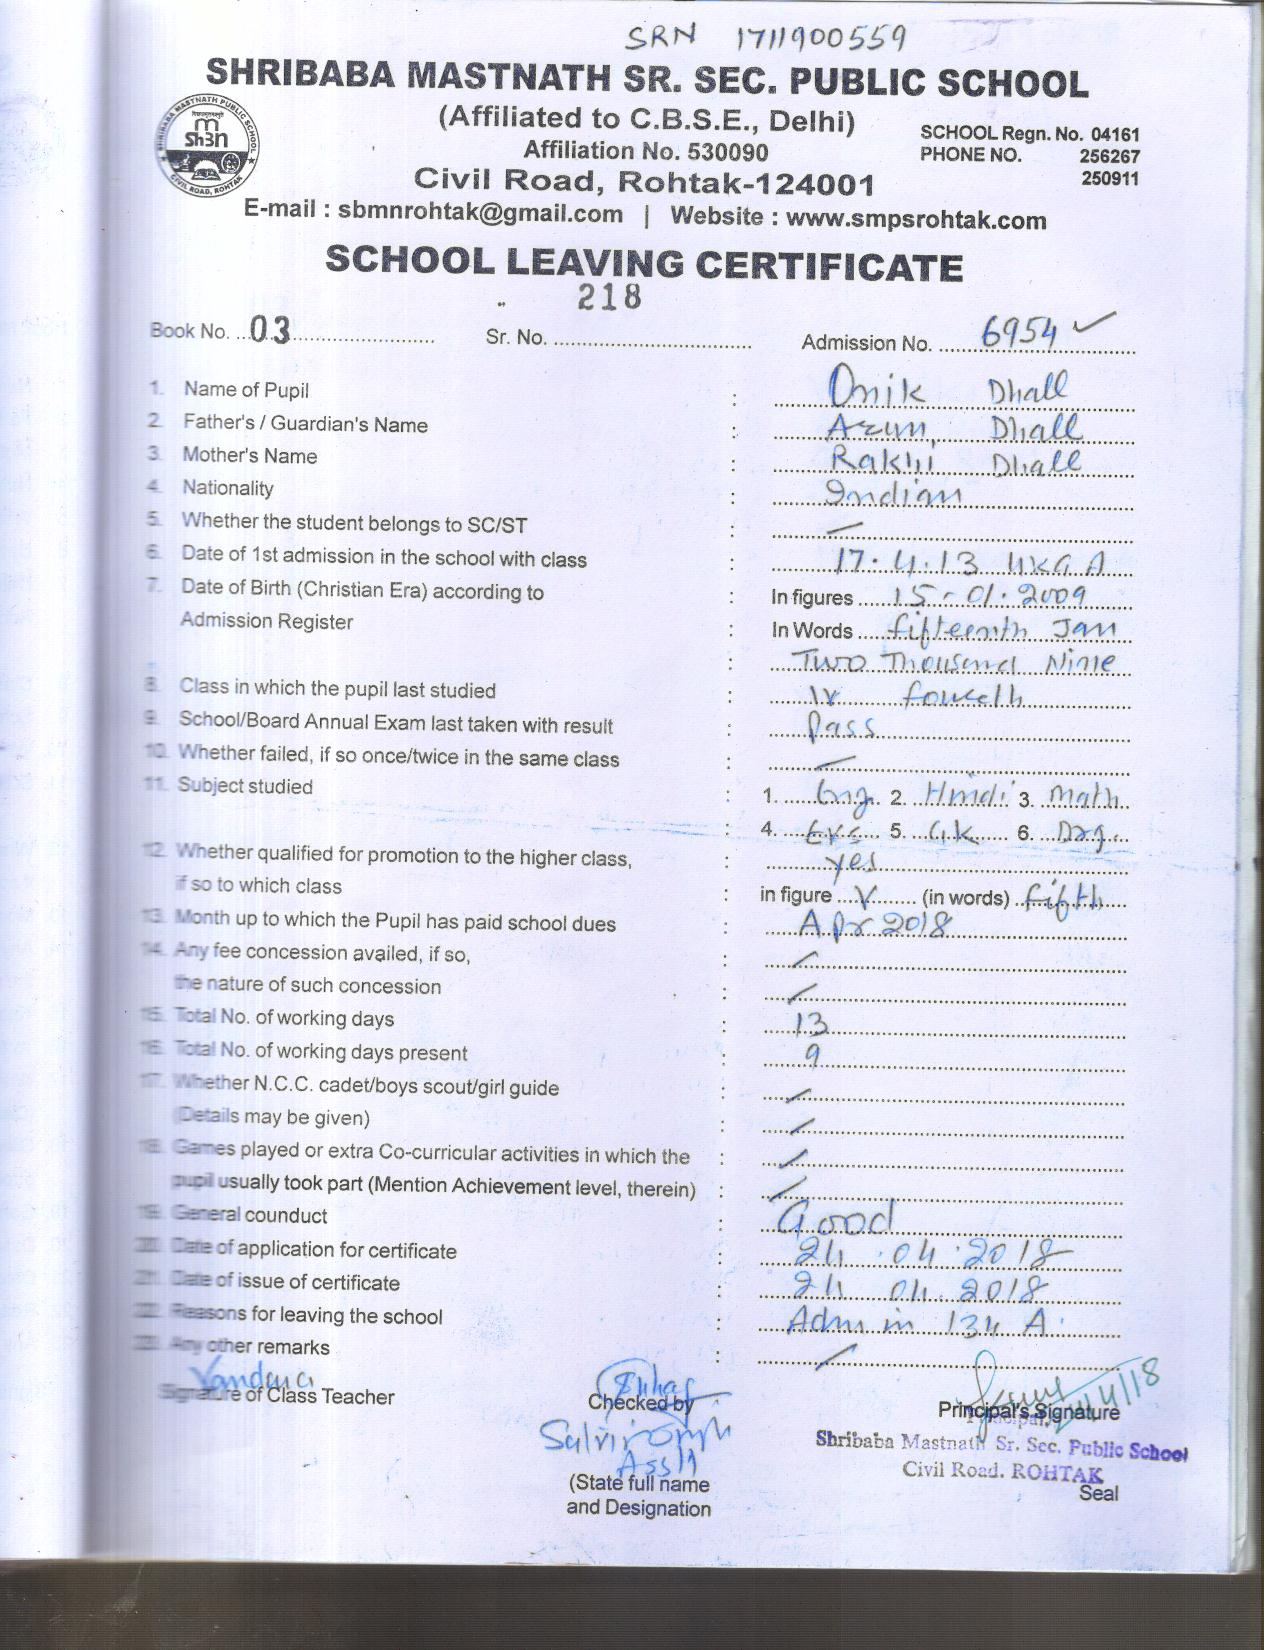 SRN 1711900559
SHRIBABA MASTNATH SR. SEC. PUBLIC SCHOOL
(Affiliated to C.B.S.E., Delhi)
SHRIBABA MASTNATH PUBLIC SCHOOL
CIVIL ROAD, ROHTAK
SCHOOL Regn. No. 04161
Affiliation No. 530090
PHONE NO. 256267
250911
Civil Road, Rohtak-124001
E-mail : sbmnrohtak@gmail.com | Website : www.smpsrohtak.com
SCHOOL LEAVING CERTIFICATE
218
Book No. 03 Sr. No. Admission No. 6954
1. Name of Pupil : Onik Dhall
2. Father's / Guardian's Name : Arun Dhall
3. Mother's Name : Rakhi Dhall
4. Nationality : Indian
5. Whether the student belongs to SC/ST : —
6. Date of 1st admission in the school with class : 17.4.13 UKG A
7. Date of Birth (Christian Era) according to : In figures 15-01-2009
Admission Register : In Words fifteenth Jan
: Two Thousand Nine
8. Class in which the pupil last studied : IV fourth
9. School/Board Annual Exam last taken with result : Pass
10. Whether failed, if so once/twice in the same class : —
11. Subject studied 1. Eng. 2. Hindi 3. Math
: 4. Evs 5. GK 6. Drg.
12. Whether qualified for promotion to the higher class, : yes
if so to which class : in figure V (in words) fifth
13. Month up to which the Pupil has paid school dues : Apr 2018
14. Any fee concession availed, if so, : —
the nature of such concession : —
15. Total No. of working days : 13
16. Total No. of working days present : 9
17. Whether N.C.C. cadet/boys scout/girl guide : —
(Details may be given) : —
18. Games played or extra Co-curricular activities in which the : —
pupil usually took part (Mention Achievement level, therein) : —
19. General counduct : Good
20. Date of application for certificate : 24.04.2018
21. Date of issue of certificate : 24.04.2018
22. Reasons for leaving the school : Adm in 134 A
23. Any other remarks : —
Vandna
Signature of Class Teacher Checked by Principal's Signature
Principal
Shribaba Mastnath Sr. Sec. Public School
Civil Road. ROHTAK
(State full name
Seal
and Designation